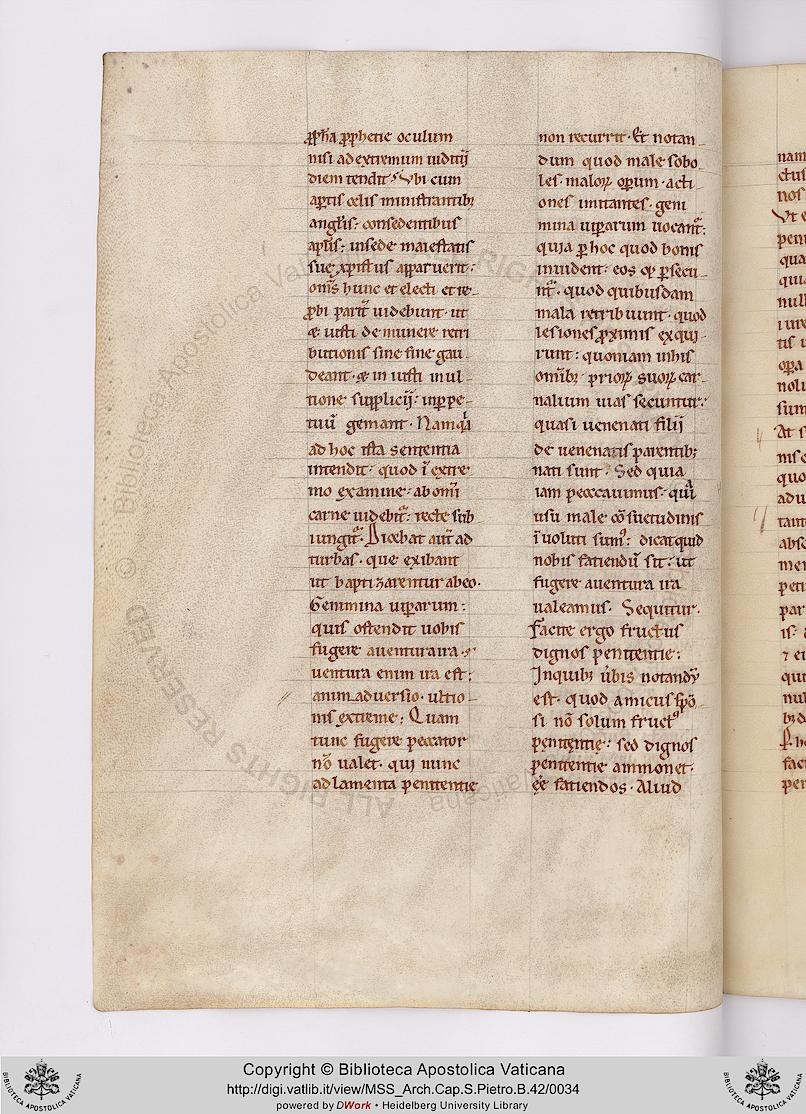 ꝓpħa ꝓphetie oculum
nisi ad extremum uidicij
diem tendit. Vbi cum
aptis celis ministrantibꝫ
anglis: consedentibus
aplis: in sede maiestatis
sue xpistus apparuerit:
oms hunc et electi et re-
ꝓbi parit uidebunt. ut
& iusti de munere retri
butionis sine fine gau-
deant. & in iusti in ul-
tione supplicij: inꝑpe-
tuū gemant. Namqͣ
ad hoc ista sententia
intendit: quod ī extre
mo examine: ab omi
carne uidebit᷑: recte sub
iungit᷑. Dicebat aut̄ ad
turbas. que exibant
ut baptizarentur ab eo.
Gemmina uiꝑarum:
quis ostendit uobis
fugere a uentura ira.
uentura enim ira est:
animaduersio. ultio-
nis extreme: Quam
tunc fugere peccator
nō ualet. qui nunc
ad lamenta penitentie
non recurrit. Et notan
dum quod male sobo
les. maloꝝ oꝑum. acti-
ones imitantes. geni
mina uiꝑarum uocant᷑:
quia ꝑ hoc quod bonis
inuident: eos qꝫ ꝑsecu-
nt᷑. quod quibusdam
mala retribuunt. quod
lesiones ꝓximis exqui-
runt: quoniam in his
omībꝫ prioꝝ suoꝝ car-
nalium uias secuntur:
quasi uenenati filii
de uenenatis parentibꝫ
nati sunt. Sed quia
iam peccauimus. quia
usu male cōsuetudinis
īuoluti sumꝰ: dicat quid
nobis fatiendū sit: ut
fugere a uentura ira
ualeamus. Sequitur.
Facite ergo fructus
dignos penitentie:
In quibꝫ ũbis notandū
est. quod amicus spō
si nō solum fructꝰ
penitentie: sed dignos
penitentie ammonet.
eē fatiendos. Aliud
nam
ctus
nos
Vt e
peni
qua
quia
null
iure
tis u
oꝑa
noli
sum
At s
quo
adu
tant
absc
mer
peti
par
is: a
qui
nul
bid
fac
pen
Copyright © Biblioteca Apostolica Vaticana
http://digi.vatlib.it/view/MSS_Arch.Cap.S.Pietro.B.42/0034
powered by DWork • Heidelberg University Library
BIBLIOTECA APOSTOLICA VATICANA
BIBLIOTECA APOSTOLICA VATICANA
© Biblioteca Apostolica Vaticana ALL RIGHTS RESERVED